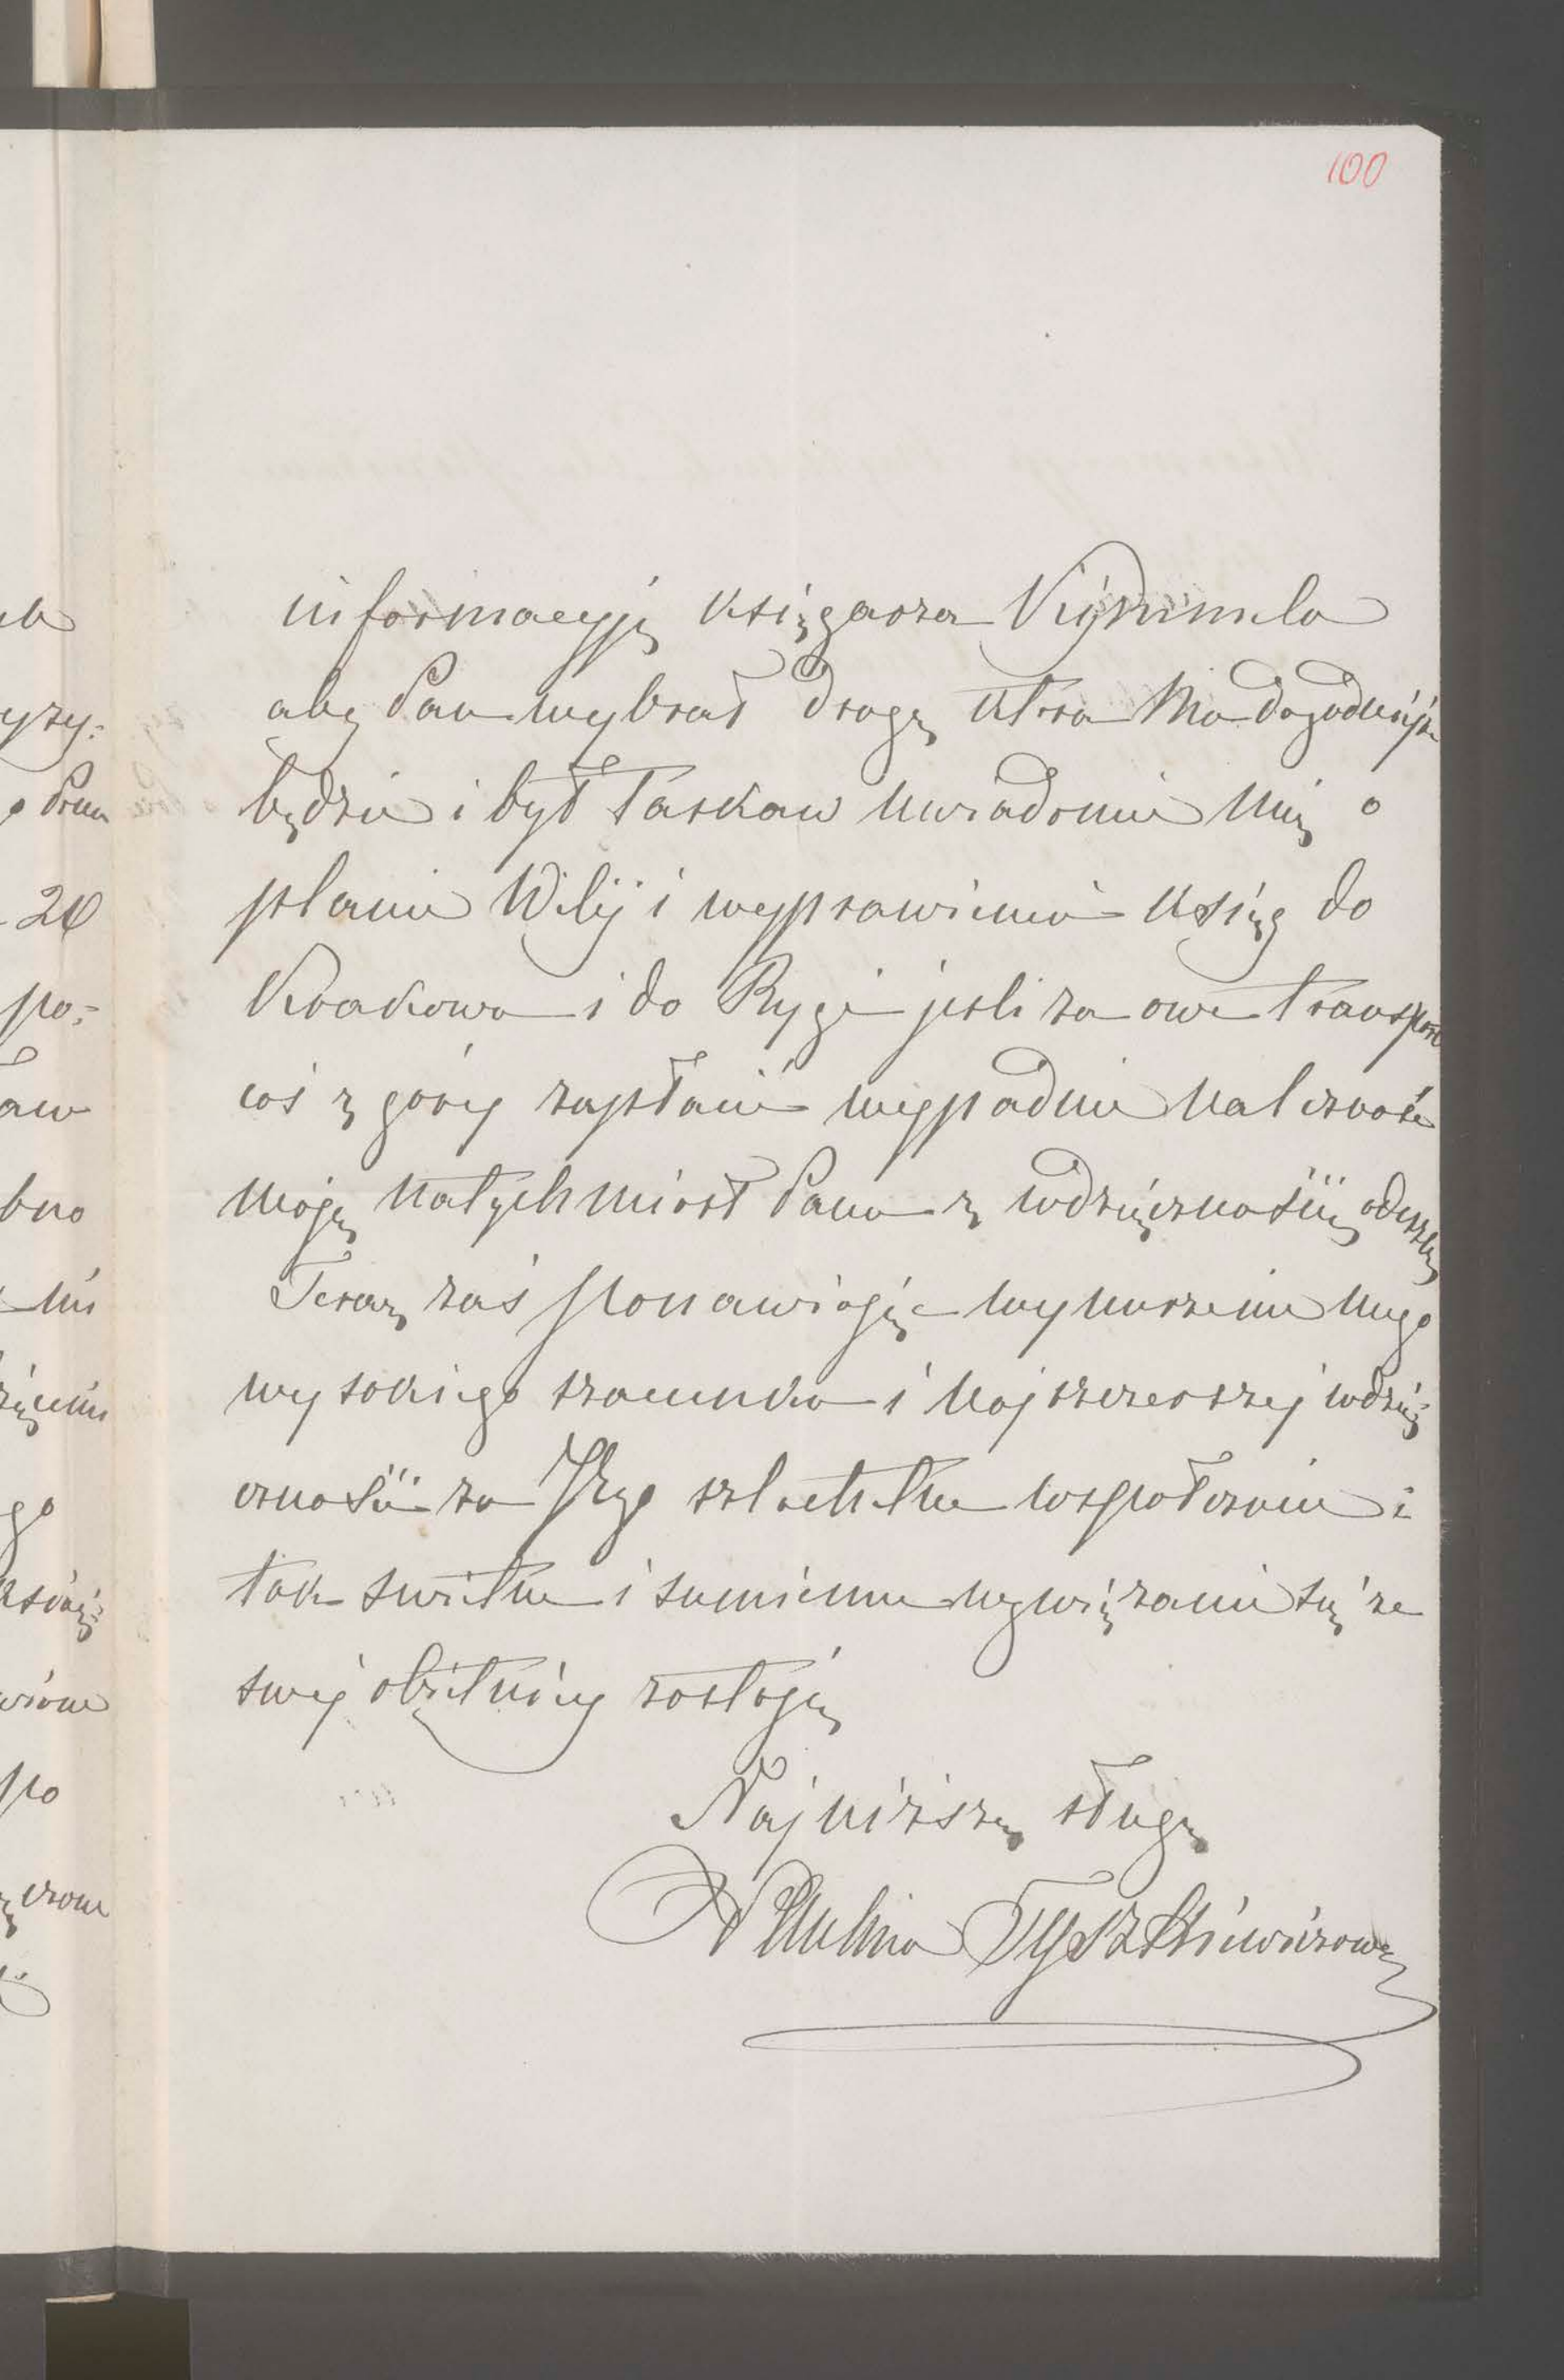 100
informacyję księgarza Kymmela
aby Pan wybrał drogę która Mu dogodniejsza
będzie i był łaskaw uwiadomić mię o
planie Wilij i wyprawieniu Książ do
Krakowa i do Rygi jesli za owe transport
coś z góry zapłacić wypadnie należność
moję natychmiast Panu z wdzięcznością odeszlę
Teraz zaś ponawiając wynurzenie mego
wysokiego szacunku i najszczerszej wdzię-
czności za Jego szlachetne współczucie i
tak świetne i sumienne wywiązanie się ze
swéj obietnicy zostaję
Najniższą sługą
Tyszkiewiczowa